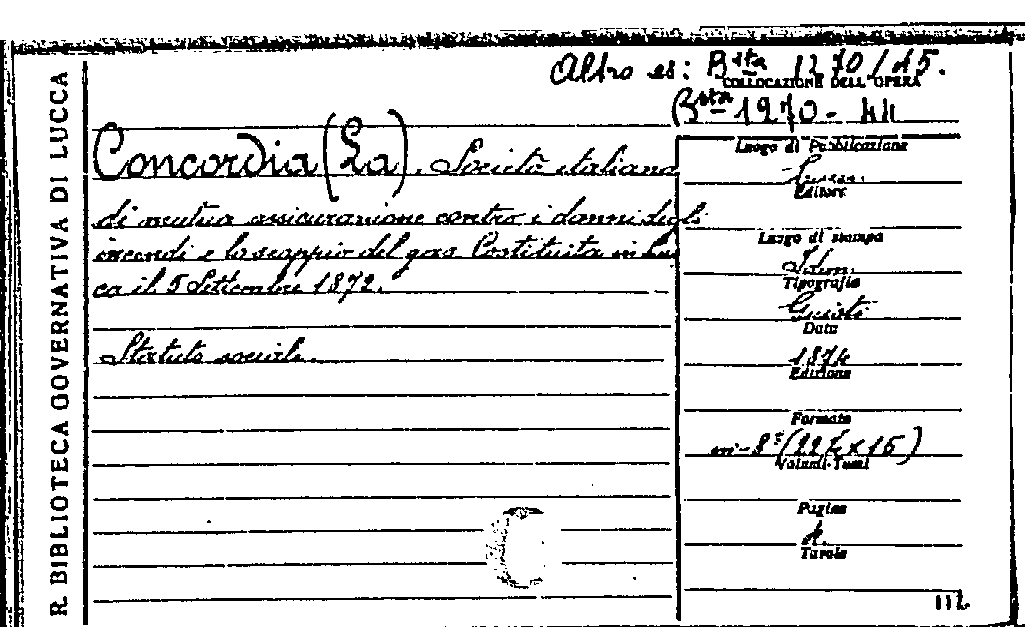 R. BIBLIOTECA GOVERNATIVA DI LUCCA
Altro es: Bsta 1270/15.
COLLOCAZIONE DELL'OPERA
Bsta 1270 - 44
Concordia (La). Società italiana
di mutua assicurazione contro i danni degli
incendi e lo scoppio del gas Costituita in Luc
ca il 5 Settembre 1872.
Statuto sociale.
Luogo di Pubblicazione
Lucca
Editore
Luogo di stampa
Idem.
Tipografia
Giusti
Data
1874
Edizione
Formato
in-8º
Volumi-Tomi
Pagine
Tavole